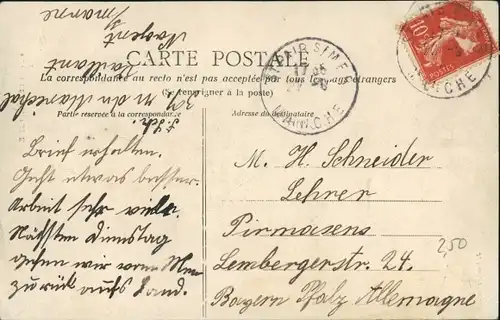 Nogent s/
marne
Vaillant
39 r du Maréchal
CARTE POSTALE
La correspondance au recto n'est pas acceptée par tous les pays étrangers
(Se renseigner à la poste)
Partie réservée à la correspondance
Adresse du destinataire
Brief erhalten.
Geht etwas besser.
Arbeit sehr viel.
Nächsten Dienstag
gehen wir vom
zurück aufs Land.
M. H. Schneider
Lehrer
Pirmasens
Lembergerstr. 24.
Bayern Pfalz Allemagne
2,50
MANCHE
10
POSTES